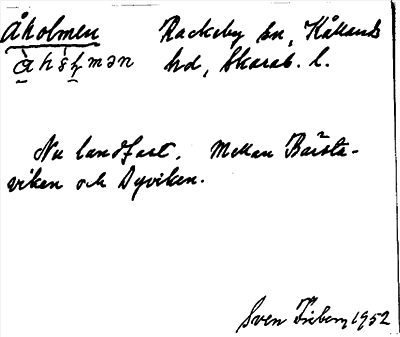 Åholmen Rackeby sn, Kållands
hd, Skarab. l.
Nu landfast. Mellan Bärsta-
viken och Dyviken.
Sven 1952